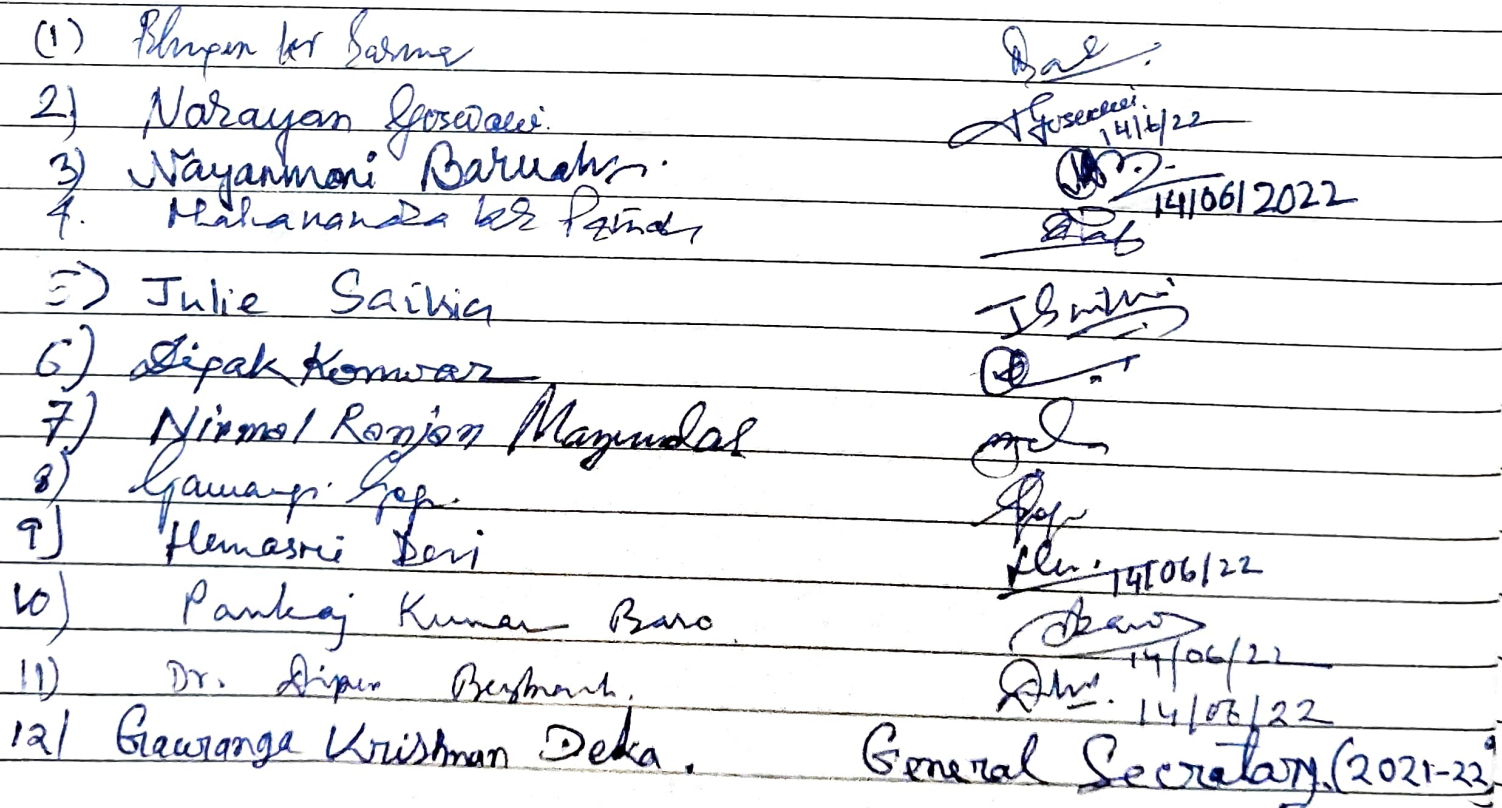 (1) Bhupen kr Sarma
2) Narayan Goswami. Goswami 14/6/22
3) Nayanmoni Baruah. 14/06/2022
4. Mahananda kr
5) Julie Saikia JSaikia
6) Dipak Konwar
7) Nirmal Ranjan Mazumdar
8) Gogoi
9) Hemasri Devi 14/06/22
10) Pankaj Kumar Baro. 14/06/22
11) Dr. Dipen 14/06/22
12/ Gauranga Krishnan Deka. General Secretary. (2021-22)